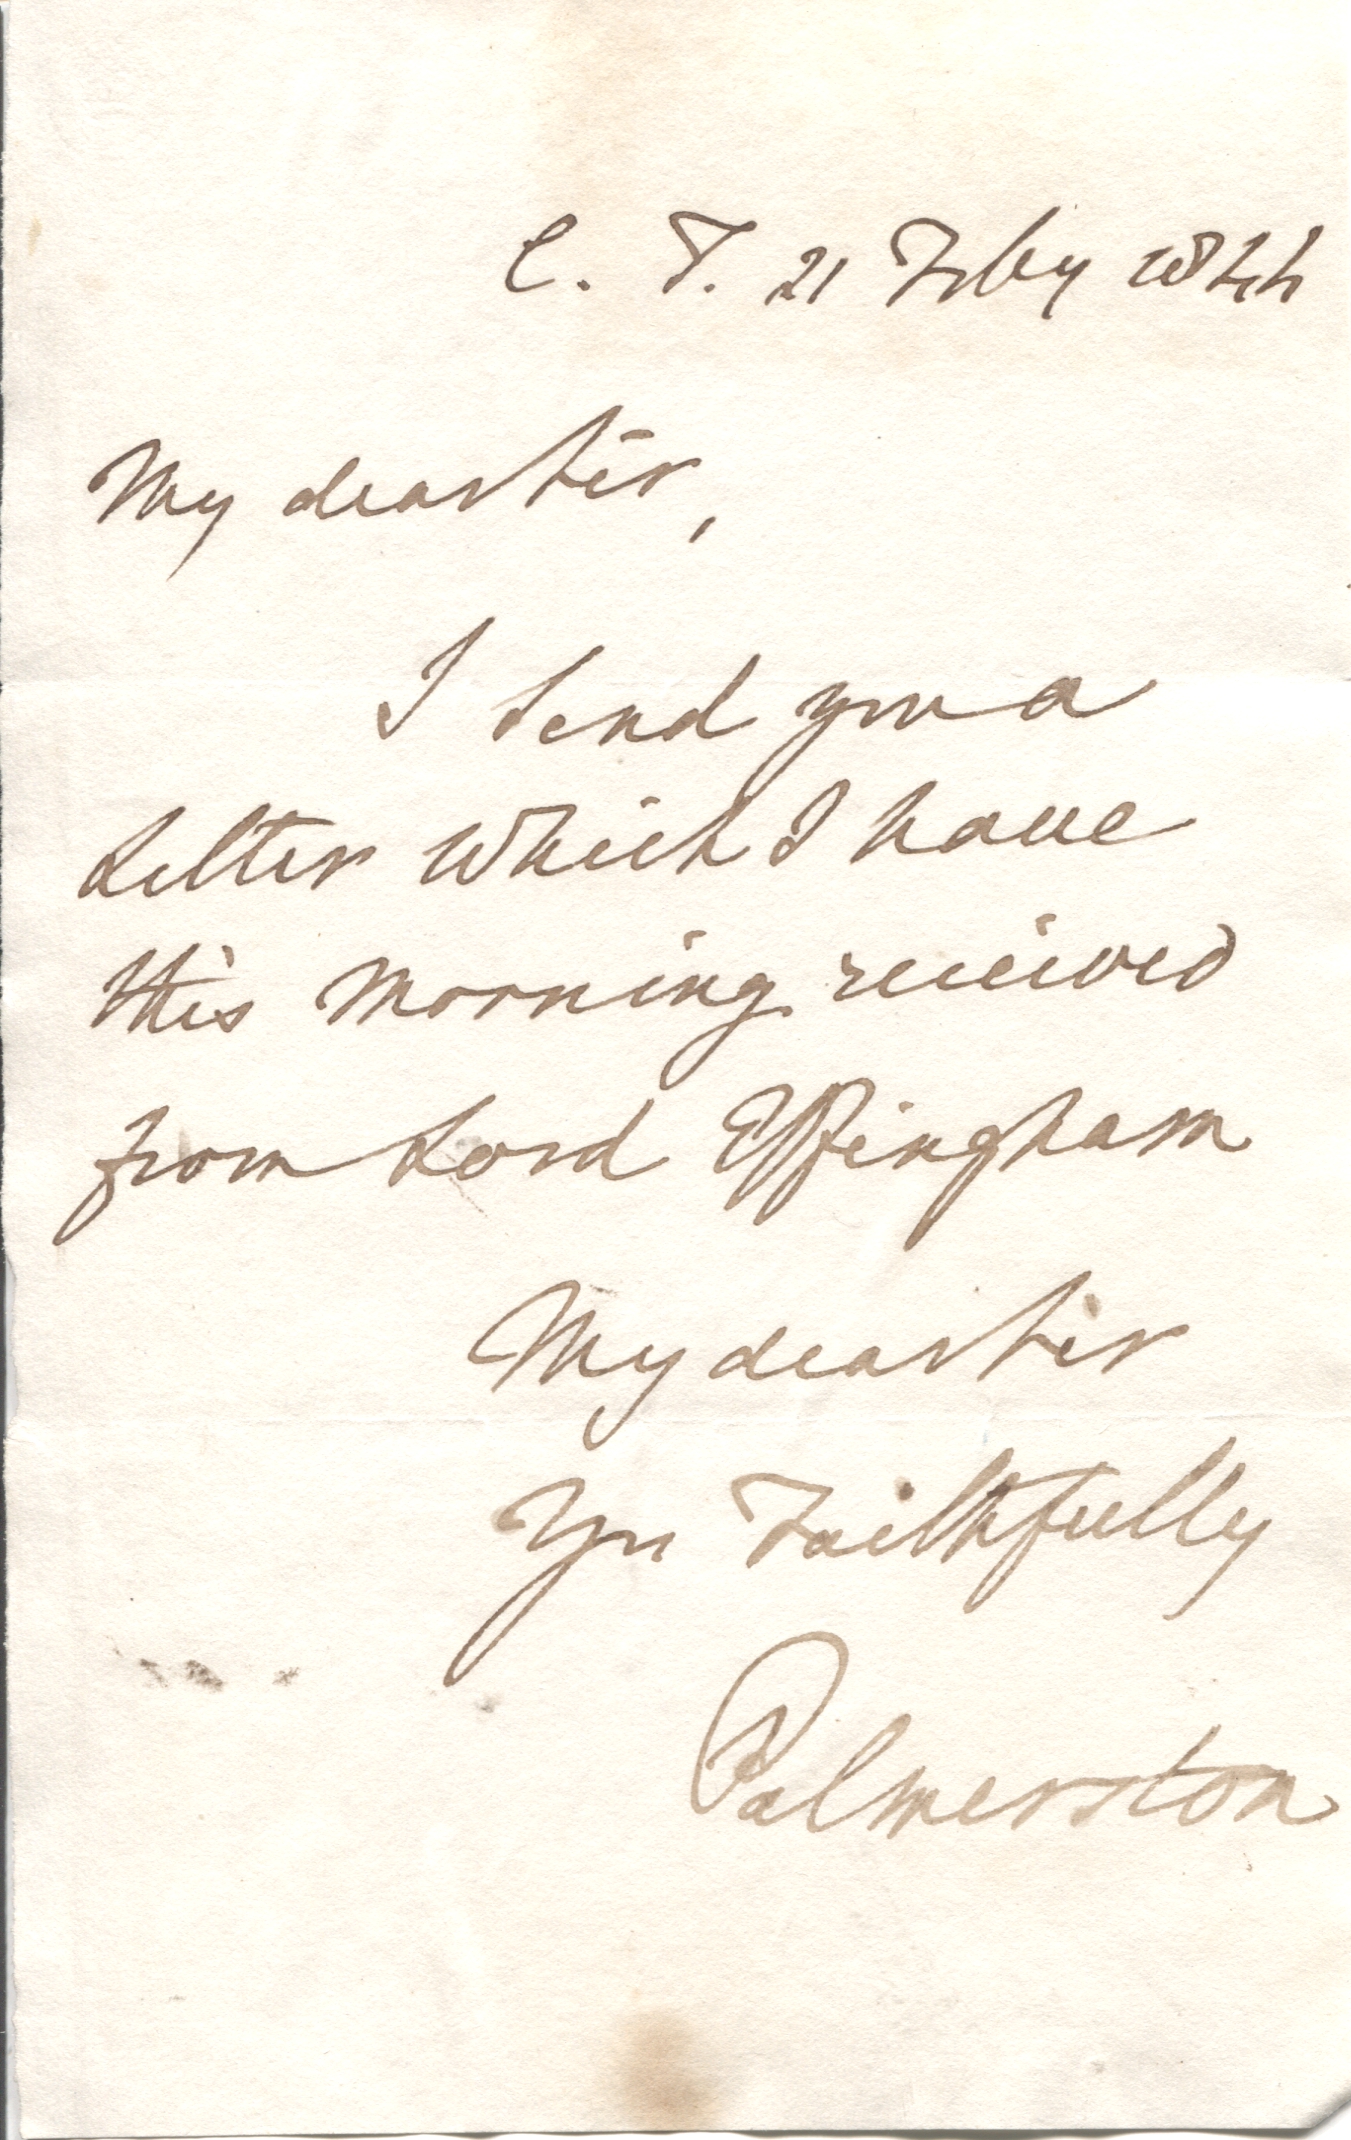 C. T. 21 Feby 1844
My dear Sir,
I Send you a
Letter which I have
this Morning received
from Lord Effingham
My dear Sir
Yrs Faithfully
Palmerston